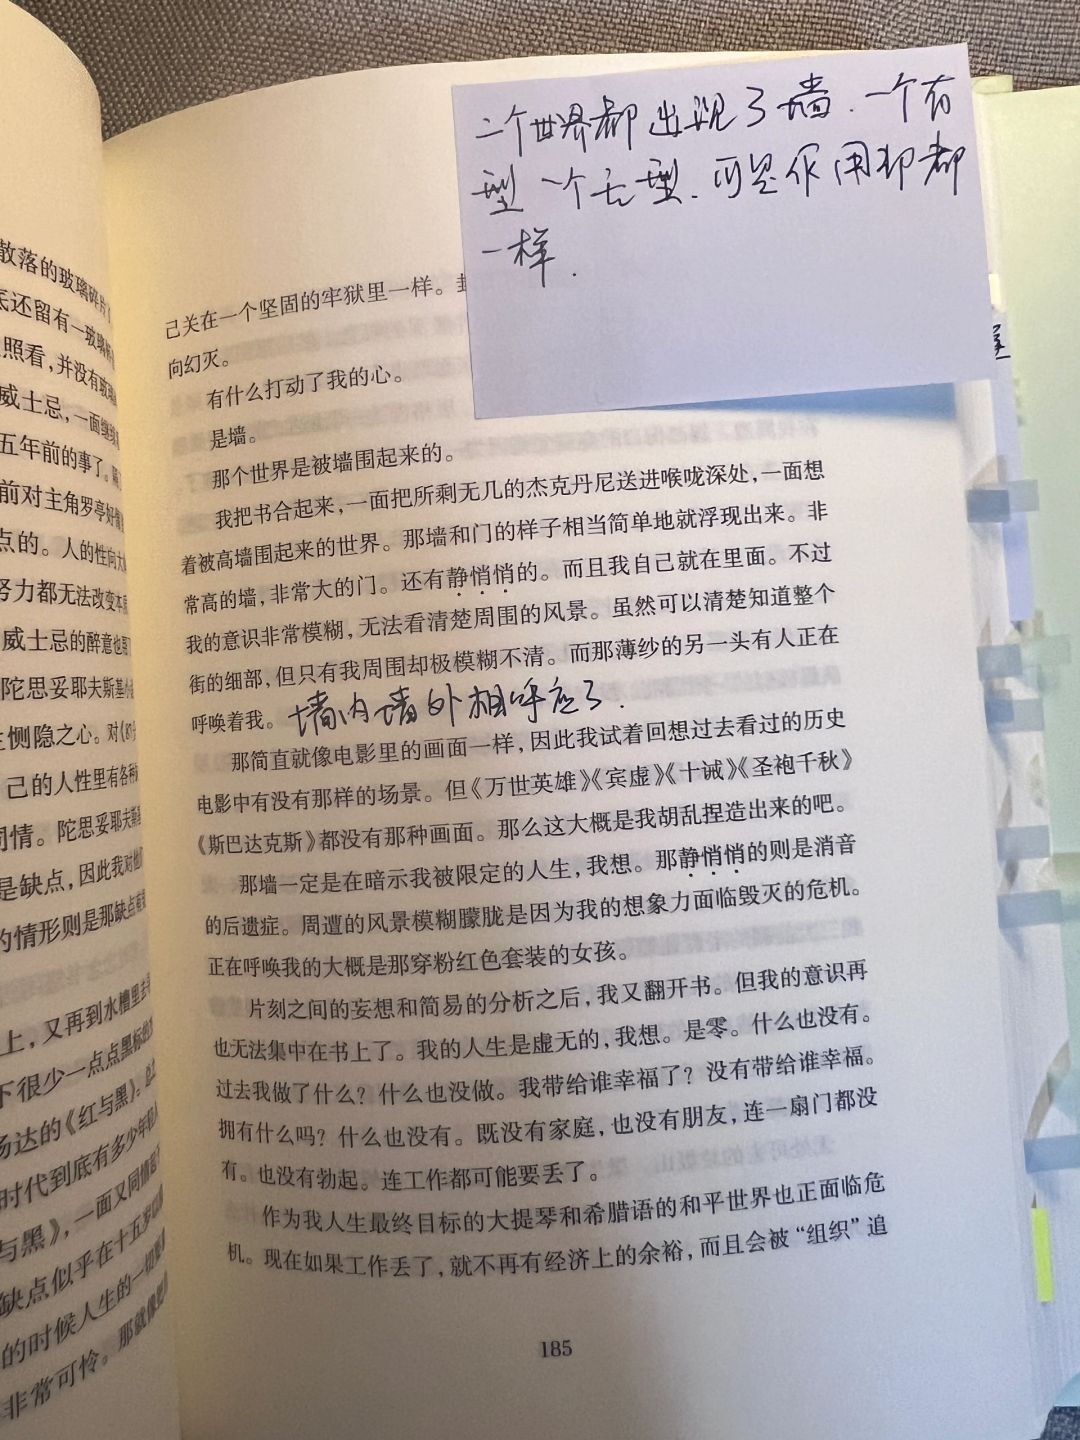 二个世界都出现了墙.一个有
型一个无型.可是作用却都
一样.
散落的玻璃碎片
底还留有一玻璃
照看,并没有玻璃
威士忌,一面继续
五年前的事了。
前对主角罗亭好像
点的。人的性向大
努力都无法改变本
威士忌的醉意也
陀思妥耶夫斯基
恻隐之心。对
己的人性里有各种
同情。陀思妥耶夫斯
是缺点,因此我对他
的情形则是那缺点
上,又再到水槽里去
下很少一点点黑标
汤达的《红与黑》。
时代到底有多少年
与黑》,一面又同情
缺点似乎在十五岁
的时候人生的一切
非常可怜。那就像
己关在一个坚固的牢狱里一样。
向幻灭。
有什么打动了我的心。
是墙。
那个世界是被墙围起来的。
我把书合起来,一面把所剩无几的杰克丹尼送进喉咙深处,一面想
着被高墙围起来的世界。那墙和门的样子相当简单地就浮现出来。非
常高的墙,非常大的门。还有静悄悄的。而且我自己就在里面。不过
我的意识非常模糊,无法看清楚周围的风景。虽然可以清楚知道整个
街的细部,但只有我周围却极模糊不清。而那薄纱的另一头有人正在
呼唤着我。墙内墙外相呼应了.
那简直就像电影里的画面一样,因此我试着回想过去看过的历史
电影中有没有那样的场景。但《万世英雄》《宾虚》《十诫》《圣袍千秋》
《斯巴达克斯》都没有那种画面。那么这大概是我胡乱捏造出来的吧。
那墙一定是在暗示我被限定的人生,我想。那静悄悄的则是消音
的后遗症。周遭的风景模糊朦胧是因为我的想象力面临毁灭的危机。
正在呼唤我的大概是那穿粉红色套装的女孩。
片刻之间的妄想和简易的分析之后,我又翻开书。但我的意识再
也无法集中在书上了。我的人生是虚无的,我想。是零。什么也没有。
过去我做了什么?什么也没做。我带给谁幸福了?没有带给谁幸福。
拥有什么吗?什么也没有。既没有家庭,也没有朋友,连一扇门都没
有。也没有勃起。连工作都可能要丢了。
作为我人生最终目标的大提琴和希腊语的和平世界也正面临危
机。现在如果工作丢了,就不再有经济上的余裕,而且会被“组织”追
185